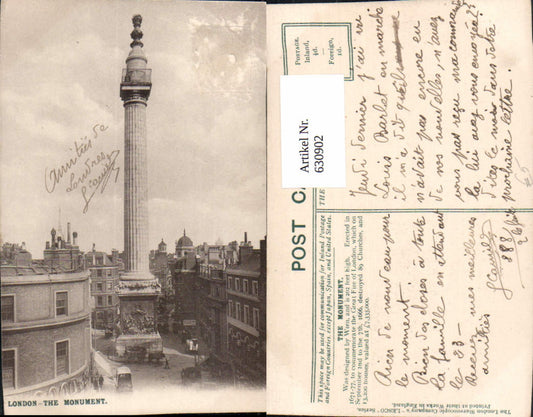 Amitiés de
Londres
LONDON - THE MONUMENT.
Artikel Nr.
630902
POSTAGE.
Inland,
½d.
Foreign,
1d.
POST CA
THE
This space may be used for communication for Inland Postage
and Foreign Countries, except Japan, Spain, and United States.
THE MONUMENT.
Was designed by Wren, and is 202 feet high. Erected in
1671-77, to commemorate the Great Fire of London, which on
September 2nd to the 7th, 1666, destroyed 89 Churches, and
13,200 houses, valued at £7,335,000.
The London Stereoscopic Company's "LESCO" Series.
Printed at their Works in England.
Jeudi dernier j'ai vu
Louis Barlet en marche
il m'a dit qu'il
n'avait pas encore eu
de vos nouvelles, n'avez
vous pas reçu ma commune
la lui avez vous envoyée?
dites le moi dans votre
prochaine lettre.
Rien de nouveau pour
le moment.
Bien des choses à toute
la famille en attendant
le 23 —
Recevez mes meilleures
amitiés